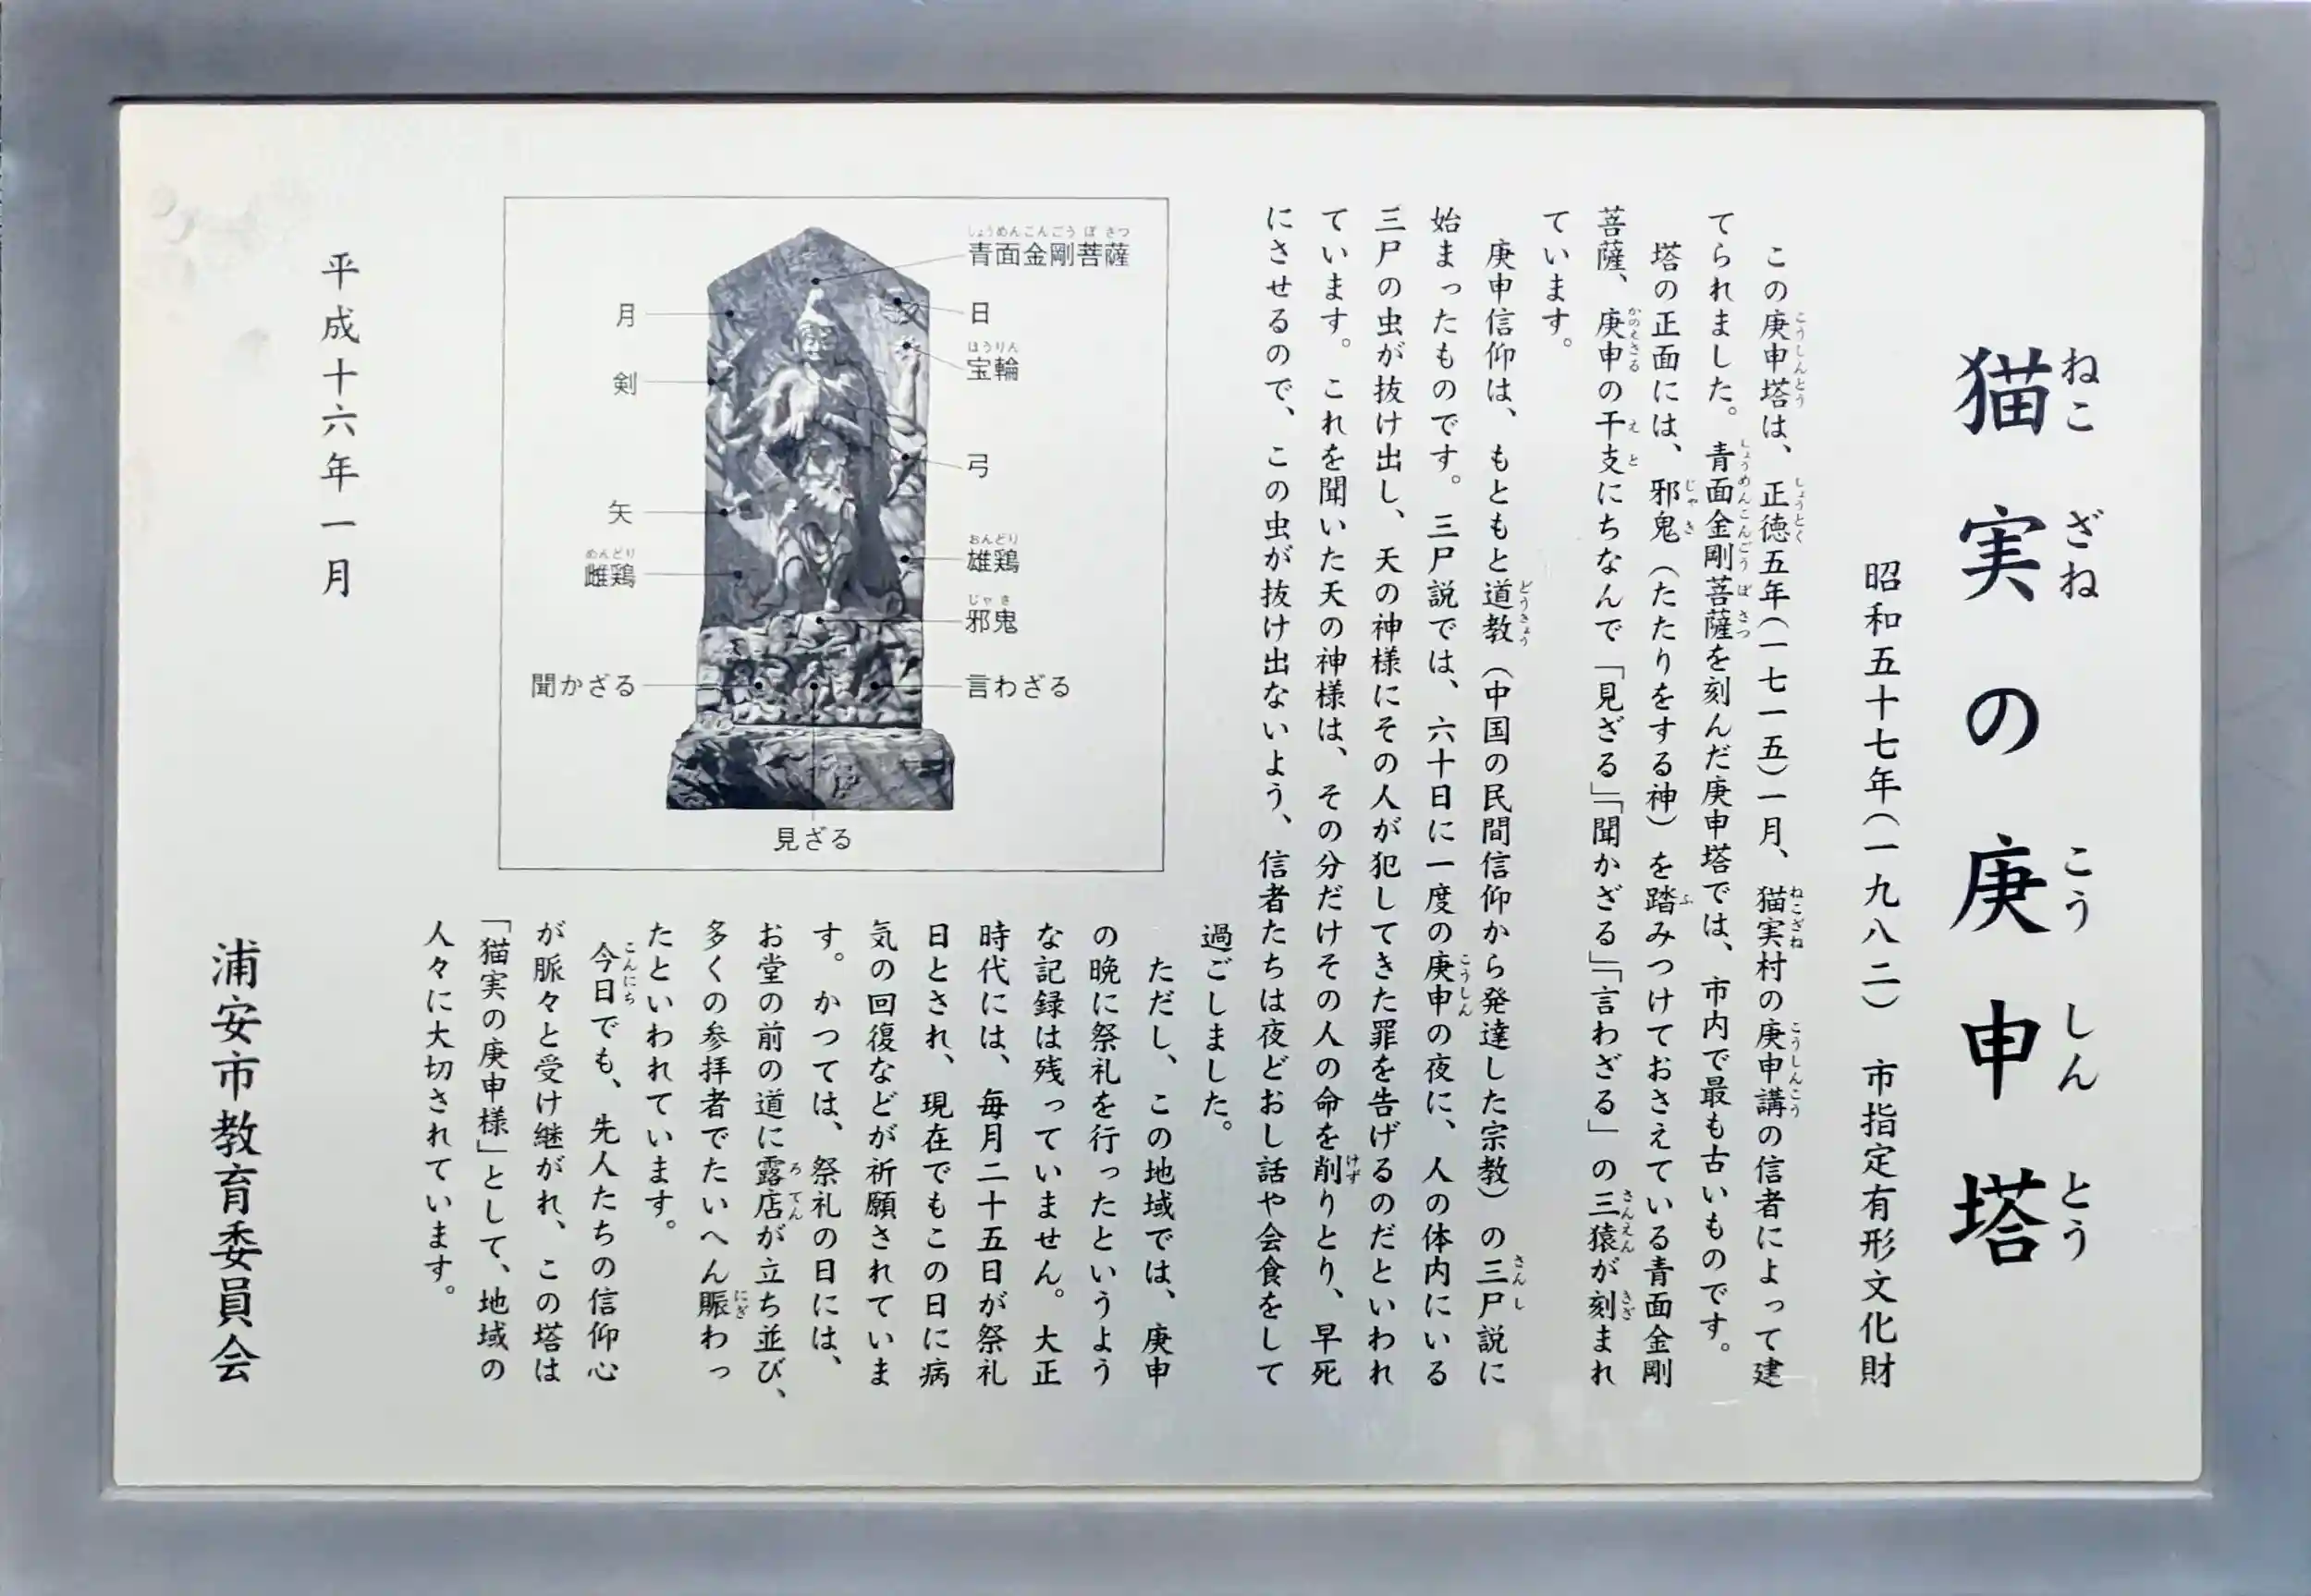 猫実の庚申塔
ねこざねこうしんとう
昭和五十七年(一九八二) 市指定有形文化財
この庚申塔は、正徳五年(一七一五)一月、猫実村の庚申講の信者によって建
こうしんとう しょうとく ねこざね こうしんこう
てられました。青面金剛菩薩を刻んだ庚申塔では、市内で最も古いものです。
しょうめんこんごうぼさつ
塔の正面には、邪鬼(たたりをする神)を踏みつけておさえている青面金剛
じゃき ふ
菩薩、庚申の干支にちなんで「見ざる」「聞かざる」「言わざる」の三猿が刻まれ
かのえさる えと さんえん きざ
ています。
庚申信仰は、もともと道教(中国の民間信仰から発達した宗教)の三尸説に
どうきょう さんし
始まったものです。三尸説では、六十日に一度の庚申の夜に、人の体内にいる
こうしん
三尸の虫が抜け出し、天の神様にその人が犯してきた罪を告げるのだといわれ
ています。これを聞いた天の神様は、その分だけその人の命を削りとり、早死
けず
にさせるので、この虫が抜け出ないよう、信者たちは夜どおし話や会食をして
過ごしました。
ただし、この地域では、庚申
の晩に祭礼を行ったというよう
な記録は残っていません。大正
時代には、毎月二十五日が祭礼
日とされ、現在でもこの日に病
気の回復などが祈願されていま
す。かつては、祭礼の日には、
お堂の前の道に露店が立ち並び、
ろてん
多くの参拝者でたいへん賑わっ
にぎ
たといわれています。
今日でも、先人たちの信仰心
こんにち
が脈々と受け継がれ、この塔は
「猫実の庚申様」として、地域の
人々に大切されています。
しょうめんこんごうぼさつ
青面金剛菩薩
日
ほうりん
宝輪
弓
おんどり
雄鶏
じゃき
邪鬼
言わざる
月
剣
矢
めんどり
雌鶏
聞かざる
見ざる
平成十六年一月
浦安市教育委員会